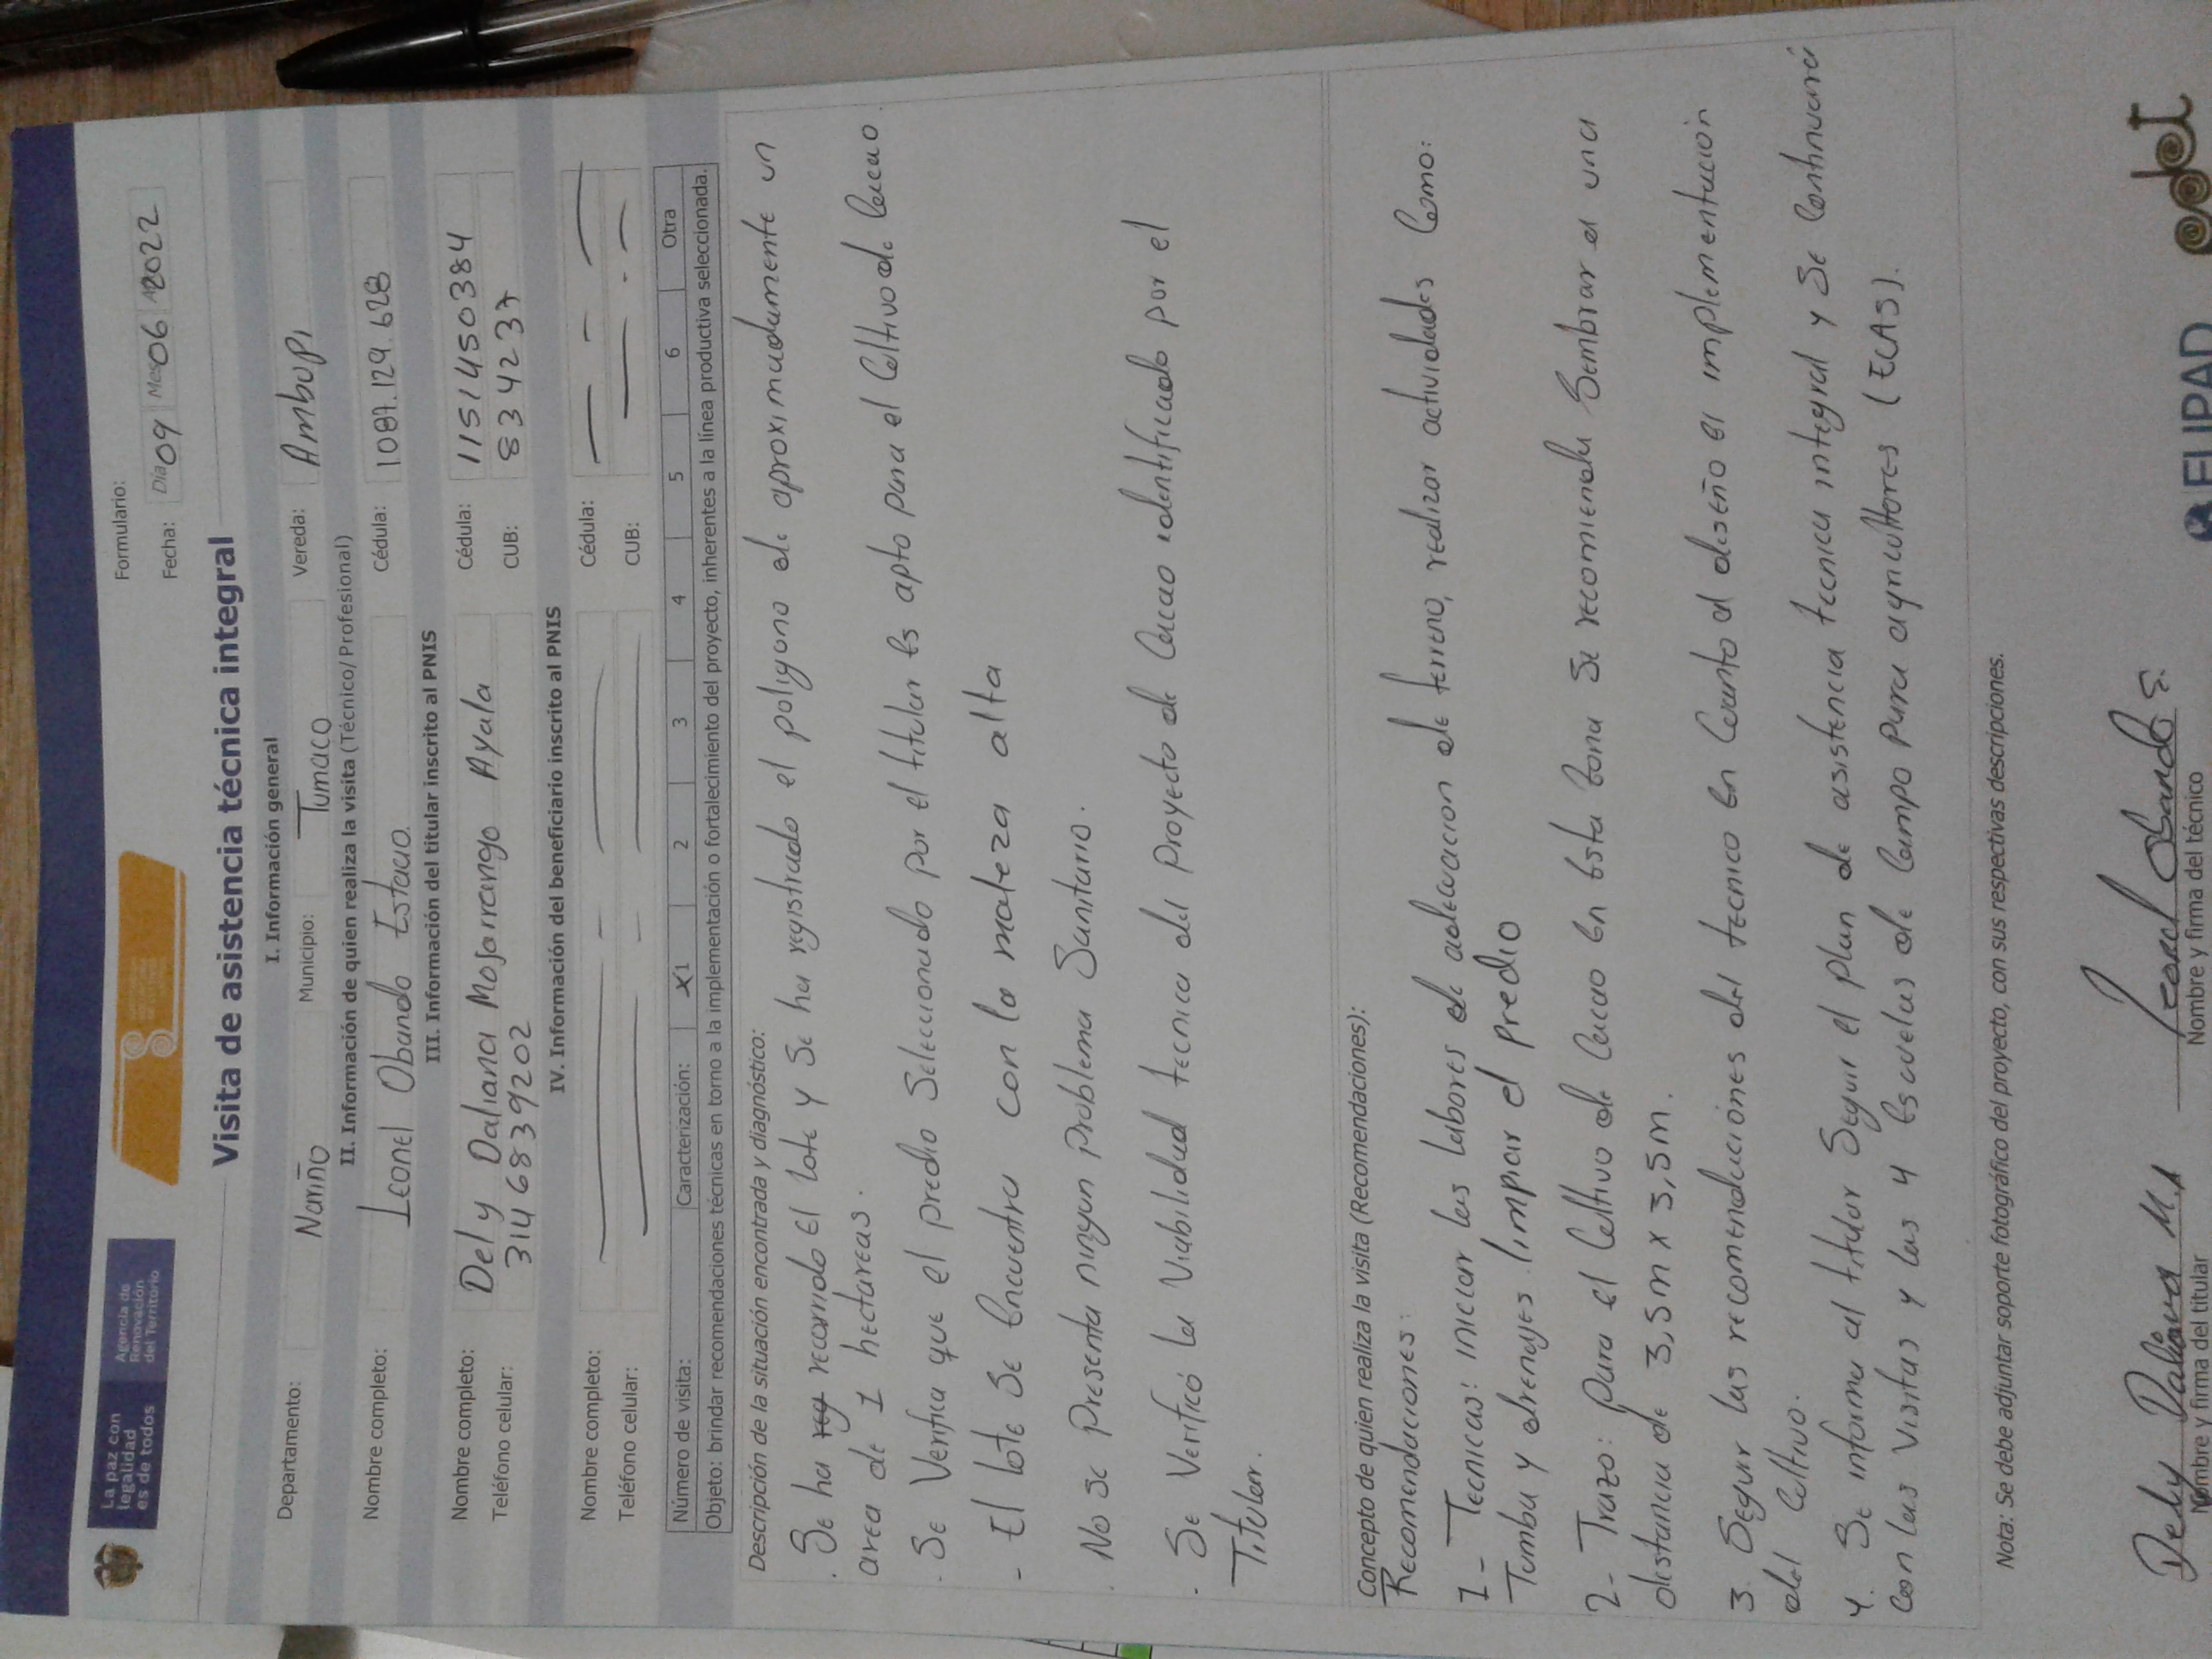 La paz con
legalidad
es de todos
Agencia de
Renovación
del Territorio
Formulario:
Fecha: Día 09 Mes 06 A 2022
Visita de asistencia técnica integral
I. Información general
Departamento: Nariño Municipio: Tumaco Vereda: Ambupi
II. Información de quien realiza la visita (Técnico/ Profesional)
Nombre completo: Leonel Obando Estacio Cédula: 1087.129.628
III. Información del titular inscrito al PNIS
Nombre completo: Dely Daliana Mojarrango Ayala Cédula: 1151450384
Teléfono celular: 3146839202 CUB: 834237
IV. Información del beneficiario inscrito al PNIS
Nombre completo: Cédula:
Teléfono celular: CUB:
Número de visita: Caracterización: X 1 2 3 4 5 6 Otra
Objeto: brindar recomendaciones técnicas en torno a la implementación o fortalecimiento del proyecto, inherentes a la línea productiva seleccionada.
Descripción de la situación encontrada y diagnóstico:
. Se ha recorrido El lote y Se ha registrado el poligono de aproximadamente un
area de 1 hectareas.
. Se Verifica que el predio Seleccionado por el titular Es apto para el Cultivo de Cacao.
- El lote Se Encuentra con la maleza alta
. No se Presenta ningun problema Sanitario.
. Se Verificó la Viabilidad tecnica del Proyecto de Cacao identificado por el
Titular.
Concepto de quien realiza la visita (Recomendaciones):
Recomendaciones:
1- Tecnicas: iniciar las labores de adecuacion de terreno, realizar actividades Como:
Tumba y drenajes. limpiar el predio
2- Trazo: Para el Cultivo de Cacao En Esta Zona Se recomienda Sembrar a una
distancia de 3,5m x 3,5m.
3. Seguir las recomendaciones del tecnico En Cuanto al diseño e implementacion
del Cultivo.
4. Se informa al titular Seguir el plan de asistencia tecnica integral y Se Continuará
Con las Visitas y las 4 Escuelas de Campo para agricultores (ECAS).
Nota: Se debe adjuntar soporte fotográfico del proyecto, con sus respectivas descripciones.
Dely Daliana M.A Leonel Obando E.
Nombre y firma del titular Nombre y firma del técnico